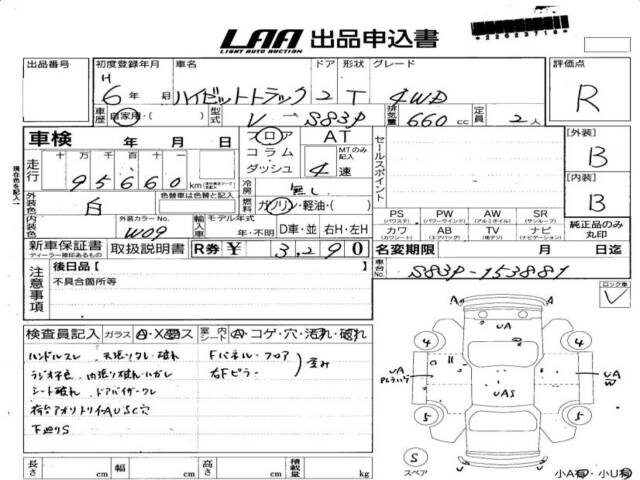 LAA 出品申込書
LIGHT AUTO AUCTION
*22623718*
出品番号 初度登録年月 車名 ドア 形状 グレード 評価点
H 6年 月 ハイゼットトラック 2 T 4WD R
車歴 自家用・( ) 型式 V - S83P 排気量 660 cc 定員 2 人
車検 年 月 日
フロア AT
コラム MTのみ記入
ダッシュ 4 速
セールスポイント
[外装] B
[内装] B
走行 十 万 千 百 十 一
95660 km
現在色を記入
外装色 白 色替車は色替と記入
冷房 無し
燃料 ガソリン・軽油・( )
内装色 外装カラーNo. W09
輸入車 モデル年式 年・不明 D車・並 右H・左H
PS (パワステ) PW (パワーウインド) AW (アルミホイル) SR (サンルーフ)
カワ (カワシート) AB (エアバッグ) TV (地デジ) ナビ (ナビゲーション)
純正品のみ丸印
新車保証書 取扱説明書 R券 ¥ 3,290
ディーラー捺印あるもの
名変期限 月 日迄
注意事項
後日品 [ ]
不具合箇所等
車台No. S83P-153881
ロック車 V
検査員記入 ガラス A・X・ス 室内 シート A・コゲ・穴・汚れ・破れ
ハンドルスレ 天張リクレ・破れ Fパネル・フロア
右Fピラー 歪み
シート破れ
下廻りS
A A
UA
4 4
UA UA W
UAS
5 5
S
スペア
小A有・小U有
長さ cm 幅 cm 高さ cm 積載量 kg